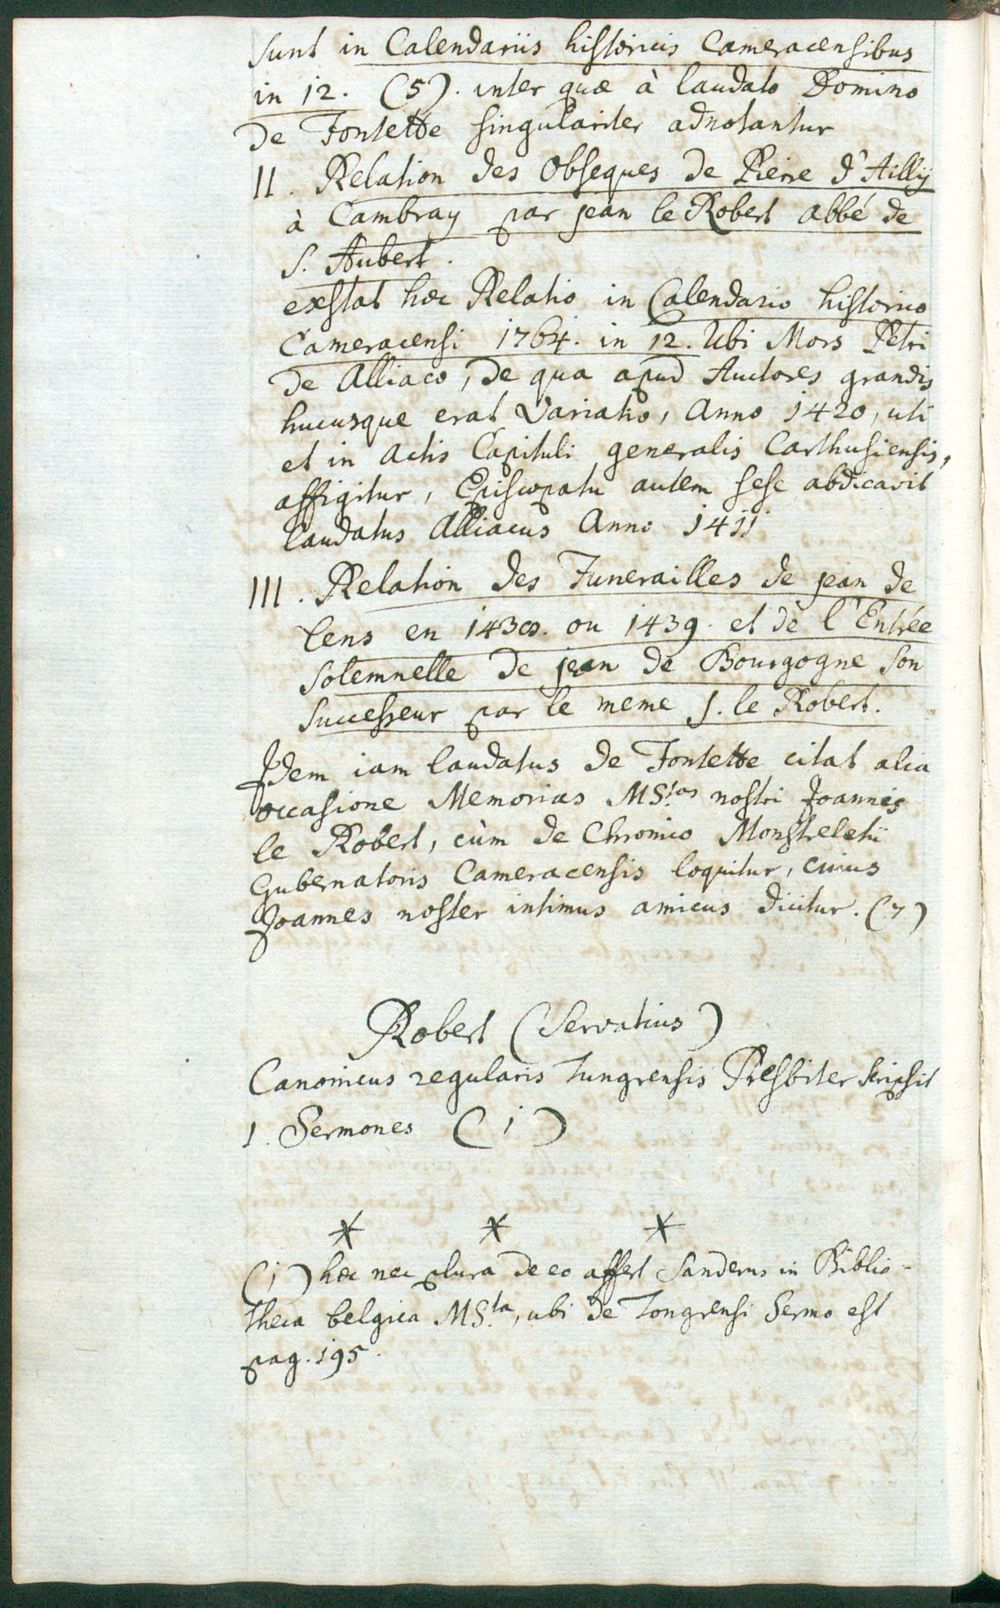 sunt in Calendariis historicis Cameracensibus
in 12. (5). inter quæ à laudato Domino
de Fontette singulariter adnotantur
II. Relation des Obseques de Pierre d'Ailly
à Cambray par jean le Robert abbé de
S. Aubert.
exstat hæc Relatio in Calendario historico
Cameracensi 1764. in 12. Ubi Mors Petri
de Alliaco, de qua apud Auctores grandis
hucusque erat Variatio, Anno 1420, uti
et in Actis Capituli generalis Carthusiensis,
affigitur, Episcopatu autem sese abdicavit
laudatus Alliacus Anno 1411
III. Relation des Funerailles de jean de
Lens en 1438. ou 1439. et de l'Entrée
solemnelle de jean de Bourgogne son
successeur par le meme J. le Robert.
Idem iam laudatus de Fontette citat alia
occasione Memorias MS.tas nostri Joannis
le Robert, cùm de Chronico Monstreletii
Gubernatoris Cameracensis loquitur, cuius
Joannes noster intimus amicus dicitur. (7)
Robert (Servatius)
Canonicus regularis Tungrensis Presbiter scripsit
1. Sermones (1)
* * *
(1) hæc nec plura de eo affert Sanderus in Biblio-
theca belgica MS.ta, ubi de Tongrensi Sermo est
pag. 195.